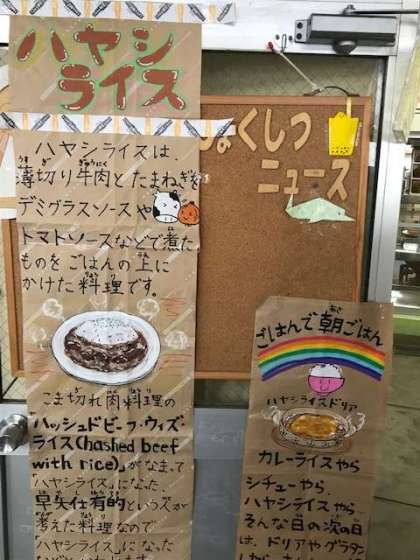 ハヤシ
ライス
ハヤシライスは、
薄切り牛肉とたまねぎを
デミグラスソースや
トマトソースなどで煮た
ものをごはんの上に
かけた料理です。
こま切れ肉料理の
「ハッシュドビーフ・ウィズ・
ライス(hashed beef
with rice)」がなまって
「ハヤシライス」になった、
早矢仕有的という人が
考えた料理なので
ょくしつ
ニュース
ごはんで朝ごはん
ハヤシライスドリア
カレーライスやら
シチューやら、
ハヤシライスやら、
そんな日の次の日
は、ドリアやグラタン